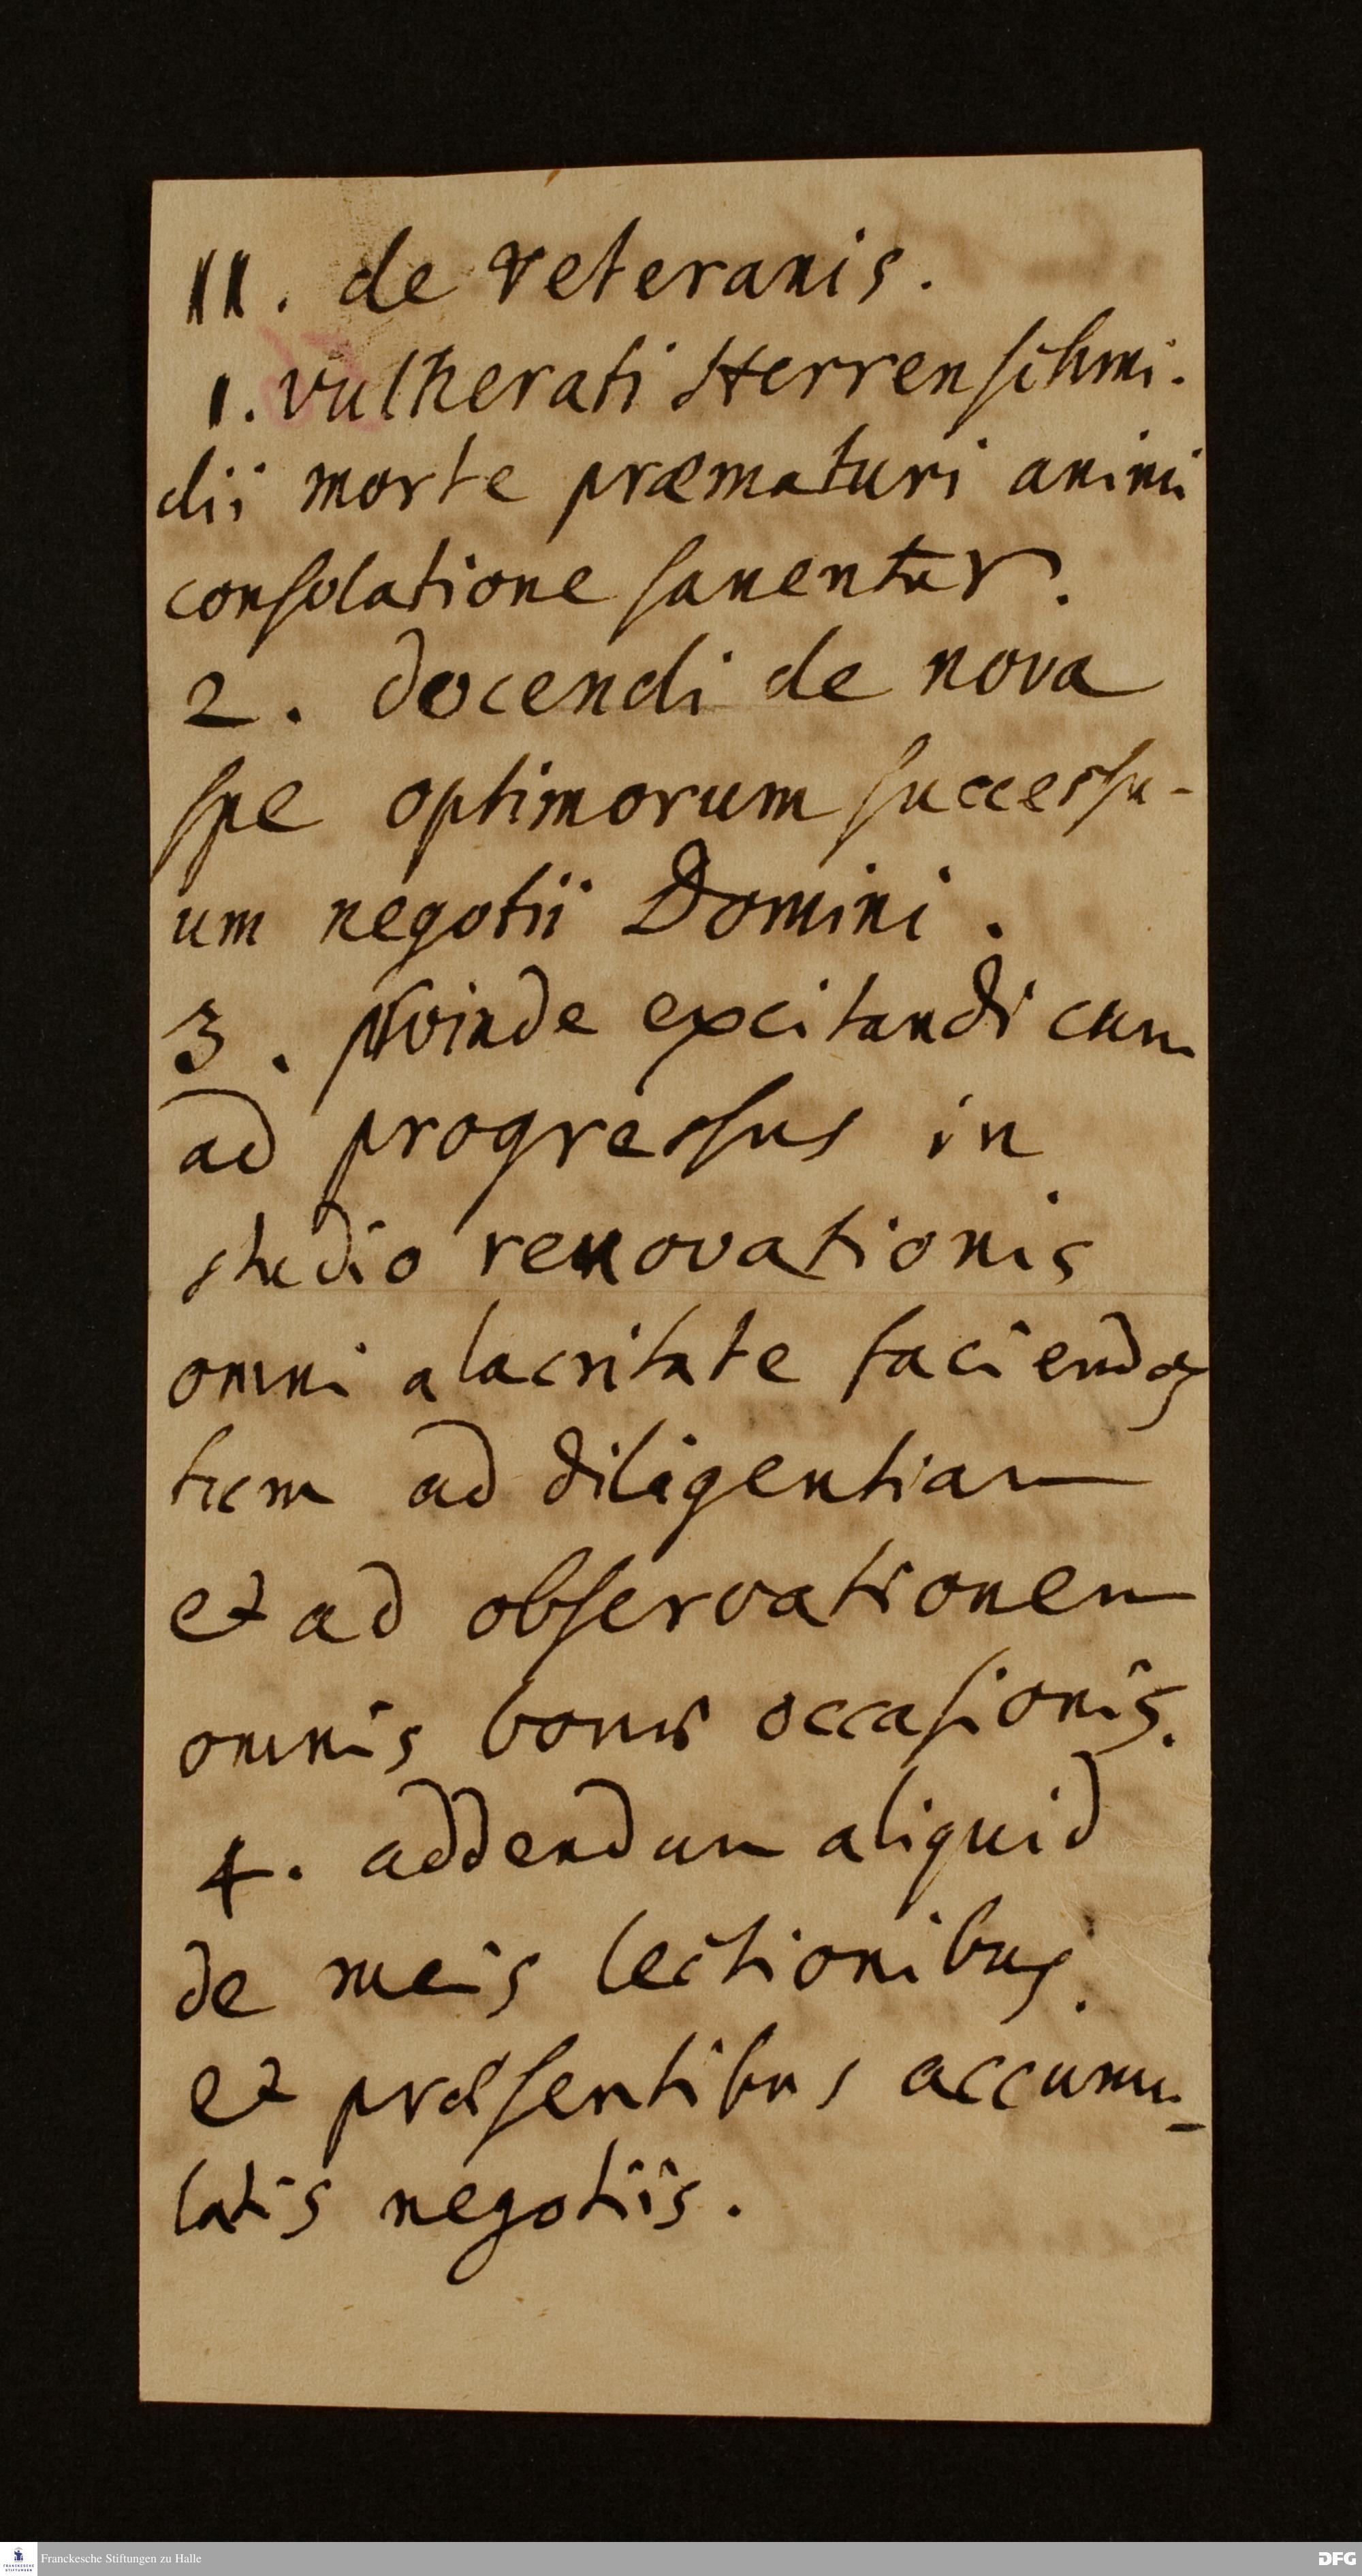 II. de veteranis.
1. vulnerati Herrenschmi-
dii morte præmaturi animi
consolatione sanentur.
2. docendi de nova
spe optimorum successu-
um negotii Domini.
3. proinde excitandi cum
ad progressus in
studio renovationis
omni alacritate faciendos
tum ad diligentiam
et ad observationem
omnis bonæ occasionis.
4. addendum aliquid
de meis lectionibus.
et præsentibus accumu-
latis negotiis.
Franckesche Stiftungen zu Halle
DFG